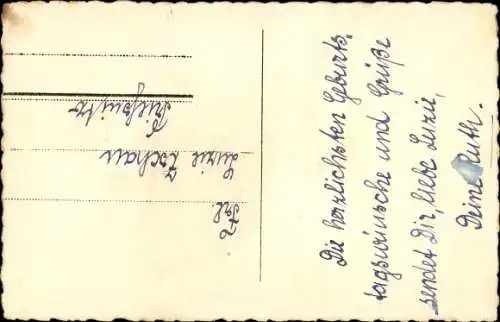 Die herzlichsten Geburts-
tagswünsche und Grüße
sendet Dir, liebe Luzie,
Deine Ruth.
Frl.
Luzie Zschau